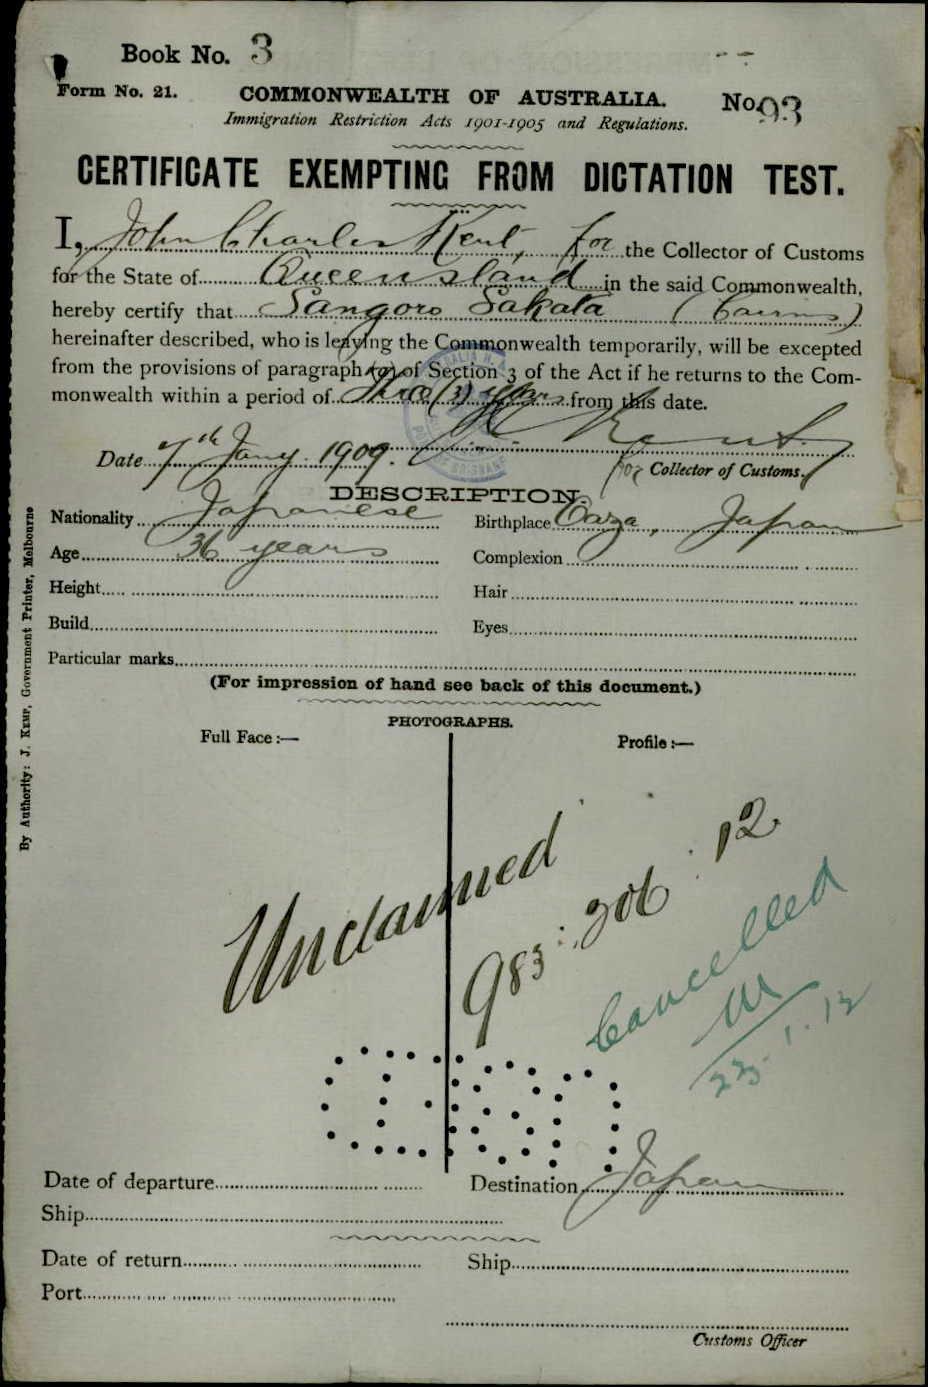 Book No. 3
Form No. 21.
COMMONWEALTH OF AUSTRALIA.
No. 93
Immigration Restriction Acts 1901-1905 and Regulations.
CERTIFICATE EXEMPTING FROM DICTATION TEST.
I, John Charles Kent, for the Collector of Customs
for the State of Queensland in the said Commonwealth,
hereby certify that Sangoro Sakata (Cairns)
hereinafter described, who is leaving the Commonwealth temporarily, will be excepted
from the provisions of paragraph of Section 3 of the Act if he returns to the Com-
monwealth within a period of three (3) years from this date.
Kent
Date 7th Jany. 1909.
for Collector of Customs.
DESCRIPTION.
Nationality Japanese
Birthplace Japan
Age 36 years
Complexion
Height
Hair
Build
Eyes
Particular marks
(For impression of hand see back of this document.)
PHOTOGRAPHS.
Full Face :—
Profile :—
By Authority: J. KEMP, Government Printer, Melbourne
Unclaimed
983 : 206 : 12
Cancelled
23.1.12
Date of departure
Destination Japan
Ship
Date of return
Ship
Port
Customs Officer